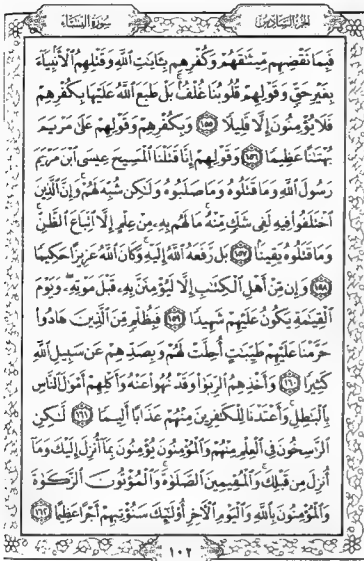 الجزء السادس سورة النساء
فَبِمَا نَقْضِهِم مِّيثَٰقَهُمْ وَكُفْرِهِم بِـَٔايَٰتِ ٱللَّهِ وَقَتْلِهِمُ ٱلْأَنۢبِيَآءَ
بِغَيْرِ حَقٍّ وَقَوْلِهِمْ قُلُوبُنَا غُلْفٌۢ بَلْ طَبَعَ ٱللَّهُ عَلَيْهَا بِكُفْرِهِمْ
فَلَا يُؤْمِنُونَ إِلَّا قَلِيلًا ١٥٥ وَبِكُفْرِهِمْ وَقَوْلِهِمْ عَلَىٰ مَرْيَمَ
بُهْتَٰنًا عَظِيمًا ١٥٦ وَقَوْلِهِمْ إِنَّا قَتَلْنَا ٱلْمَسِيحَ عِيسَى ٱبْنَ مَرْيَمَ
رَسُولَ ٱللَّهِ وَمَا قَتَلُوهُ وَمَا صَلَبُوهُ وَلَٰكِن شُبِّهَ لَهُمْ ۚ وَإِنَّ ٱلَّذِينَ
ٱخْتَلَفُوا۟ فِيهِ لَفِى شَكٍّ مِّنْهُ ۚ مَا لَهُم بِهِۦ مِنْ عِلْمٍ إِلَّا ٱتِّبَاعَ ٱلظَّنِّ ۚ
وَمَا قَتَلُوهُ يَقِينًۢا ١٥٧ بَل رَّفَعَهُ ٱللَّهُ إِلَيْهِ ۚ وَكَانَ ٱللَّهُ عَزِيزًا حَكِيمًا
١٥٨ وَإِن مِّنْ أَهْلِ ٱلْكِتَٰبِ إِلَّا لَيُؤْمِنَنَّ بِهِۦ قَبْلَ مَوْتِهِۦ ۖ وَيَوْمَ
ٱلْقِيَٰمَةِ يَكُونُ عَلَيْهِمْ شَهِيدًا ١٥٩ فَبِظُلْمٍ مِّنَ ٱلَّذِينَ هَادُوا۟
حَرَّمْنَا عَلَيْهِمْ طَيِّبَٰتٍ أُحِلَّتْ لَهُمْ وَبِصَدِّهِمْ عَن سَبِيلِ ٱللَّهِ
كَثِيرًا ١٦٠ وَأَخْذِهِمُ ٱلرِّبَوٰا۟ وَقَدْ نُهُوا۟ عَنْهُ وَأَكْلِهِمْ أَمْوَٰلَ ٱلنَّاسِ
بِٱلْبَٰطِلِ ۚ وَأَعْتَدْنَا لِلْكَٰفِرِينَ مِنْهُمْ عَذَابًا أَلِيمًا ١٦١ لَّٰكِنِ
ٱلرَّٰسِخُونَ فِى ٱلْعِلْمِ مِنْهُمْ وَٱلْمُؤْمِنُونَ يُؤْمِنُونَ بِمَآ أُنزِلَ إِلَيْكَ وَمَآ
أُنزِلَ مِن قَبْلِكَ ۚ وَٱلْمُقِيمِينَ ٱلصَّلَوٰةَ ۚ وَٱلْمُؤْتُونَ ٱلزَّكَوٰةَ
وَٱلْمُؤْمِنُونَ بِٱللَّهِ وَٱلْيَوْمِ ٱلْـَٔاخِرِ أُو۟لَٰٓئِكَ سَنُؤْتِيهِمْ أَجْرًا عَظِيمًا ١٦٢
١٠٢